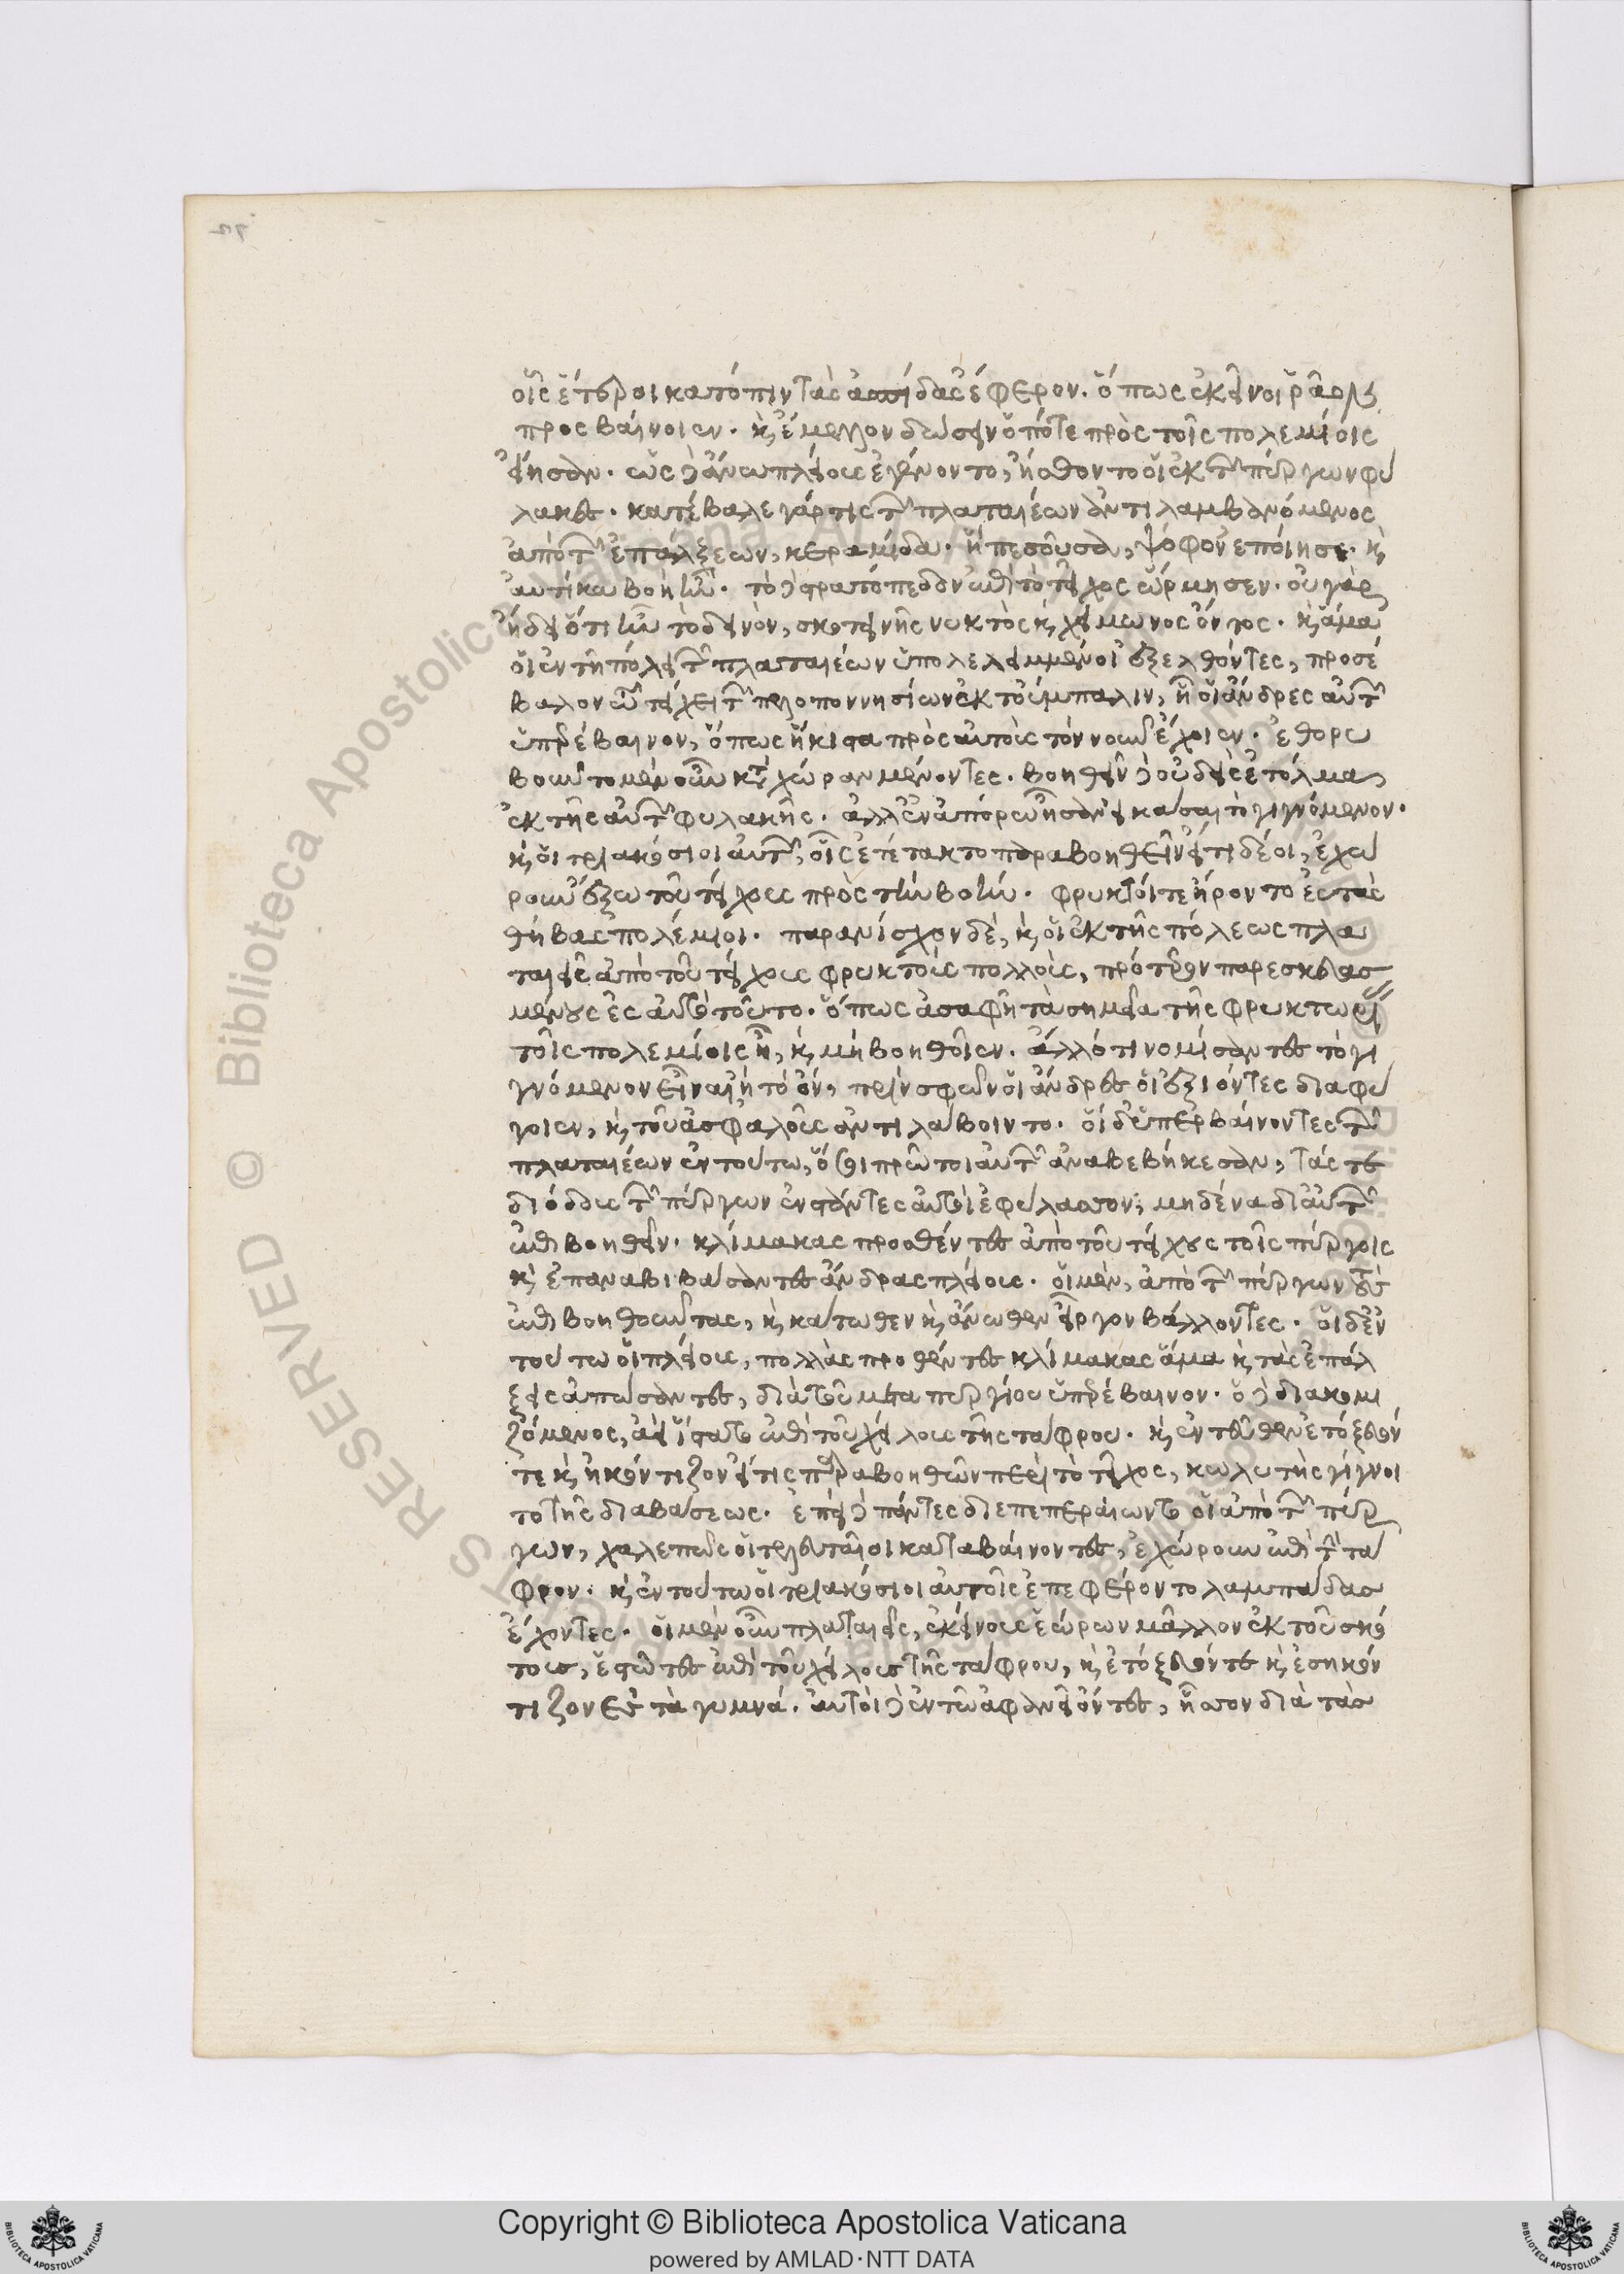 οἷς ἕτεροι κατόπιν τὰς ἀσπίδας ἔφερον. ὅπως ἐκεῖνοι ῥᾶον
προσβαίνοιεν. καὶ ἔμελλον δώσειν ὁπότε πρὸς τοῖς πολεμίοις
εἴησαν. ὡς δὲ ἄνω πλείους ἐγένοντο, ἤσθοντο οἱ ἐκ τῶν πύργων φύ
λακες. κατέβαλε γάρ τις τῶν πλαταιέων ἀντιλαμβανόμενος
ἀπὸ τῶν ἐπάλξεων, κεραμίδα. ἣ πεσοῦσα, ψόφον ἐποίησε. καὶ
αὐτίκα βοὴ ἦν. τὸ δὲ στρατόπεδον ἐπὶ τὸ τεῖχος ὥρμησεν. οὐ γὰρ
ἤδει ὅτι ἦν τὸ δεινὸν, σκοτεινῆς νυκτὸς καὶ χειμῶνος ὄντος. καὶ ἅμα
οἱ ἐν τῇ πόλει τῶν πλαταιέων ὑπολελειμμένοι ἐξελθόντες, προσέ
βαλον τῷ τείχει τῶν πελοποννησίων ἐκ τοὔμπαλιν, ἢ οἱ ἄνδρες αὐτῶν
ὑπερέβαινον, ὅπως ἥκιστα πρὸς αὐτοὺς τὸν νοῦν ἔχοιεν. ἐθορυ
βοῦντο μὲν οὖν κατὰ χώραν μένοντες. βοηθεῖν δὲ οὐδεὶς ἐτόλμα,
ἐκ τῆς αὐτῶν φυλακῆς. ἀλλ' ἐν ἀπόρῳ ἦσαν εἰκάσαι τὸ γιγνόμενον.
καὶ οἱ τριακόσιοι αὐτῶν, οἷς ἐτέτακτο παραβοηθεῖν εἴ τι δέοι, ἐχώ
ρουν ἔξω τοῦ τείχους πρὸς τὴν βοήν. φρυκτοί τε ᾔροντο ἐς τὰς
θήβας πολέμιοι. παρανίσχον δὲ, καὶ οἱ ἐκ τῆς πόλεως πλα
ταιεῖς ἀπὸ τοῦ τείχους φρυκτοὺς πολλοὺς, πρότερον παρεσκευασ
μένους ἐς αὐτὸ τοῦτο. ὅπως ἀσαφῆ τὰ σημεῖα τῆς φρυκτωρίας
τοῖς πολεμίοις ᾖ, καὶ μὴ βοηθοῖεν. ἄλλό τι νομίσαντες τὸ γι
γνόμενον εἶναι ἢ τὸ ὂν, πρὶν σφῶν οἱ ἄνδρες οἱ ἐξιόντες διαφύ
γοιεν, καὶ τοῦ ἀσφαλοῦς ἀντιλάβοιντο. οἱ δ' ὑπερβαίνοντες τῶν
πλαταιέων ἐν τούτῳ, ὡς οἱ πρῶτοι αὐτῶν ἀναβεβήκεσαν, τάς τε
διόδους τῶν πύργων ἐνστάντες αὐτοὶ ἐφύλασσον, μηδένα δι' αὐτῶν
ἐπιβοηθεῖν. κλίμακας προσθέντες ἀπὸ τοῦ τείχους τοῖς πύργοις
καὶ ἐπαναβιβάσαντες ἄνδρας πλείους. οἱ μὲν, ἀπὸ τῶν πύργων τοὺς
ἐπιβοηθοῦντας, καὶ κάτωθεν καὶ ἄνωθεν εἶργον βάλλοντες. οἱ δ' ἐν
τούτῳ οἱ πλείους, πολλὰς προθέντες κλίμακας ἅμα καὶ τὰς ἐπάλ
ξεις ἀπώσαντες, διὰ τοῦ μεταπυργίου ὑπερέβαινον. ὁ δὲ διακομι
ζόμενος, ἀεὶ ἵστατο ἐπὶ τοῦ χείλους τῆς τάφρου. καὶ ἐντεῦθεν ἐτόξευόν
τε καὶ ἠκόντιζον εἴ τις παραβοηθῶν περὶ τὸ τεῖχος, κωλυτὴς γίγνοι
το τῆς διαβάσεως. ἐπεὶ δὲ πάντες διεπεπεραίωντο οἱ ἀπὸ τῶν πύρ
γων, χαλεπῶς οἱ τελευταῖοι καταβαίνοντες, ἐχώρουν ἐπὶ τὴν τά
φρον. καὶ ἐν τούτῳ οἱ τριακόσιοι αὐτοῖς ἐπεφέροντο λαμπάδας
ἔχοντες. οἱ μὲν οὖν πλαταιεῖς, ἐκείνους ἑώρων μᾶλλον ἐκ τοῦ σκό
τους, ἑστῶτες ἐπὶ τοῦ χείλους τῆς τάφρου, καὶ ἐτόξευόν τε καὶ ἐσηκόν
τιζον ἐς τὰ γυμνά. αὐτοὶ δὲ ἐν τῷ ἀφανεῖ ὄντες, ἧσσον διὰ τὰς